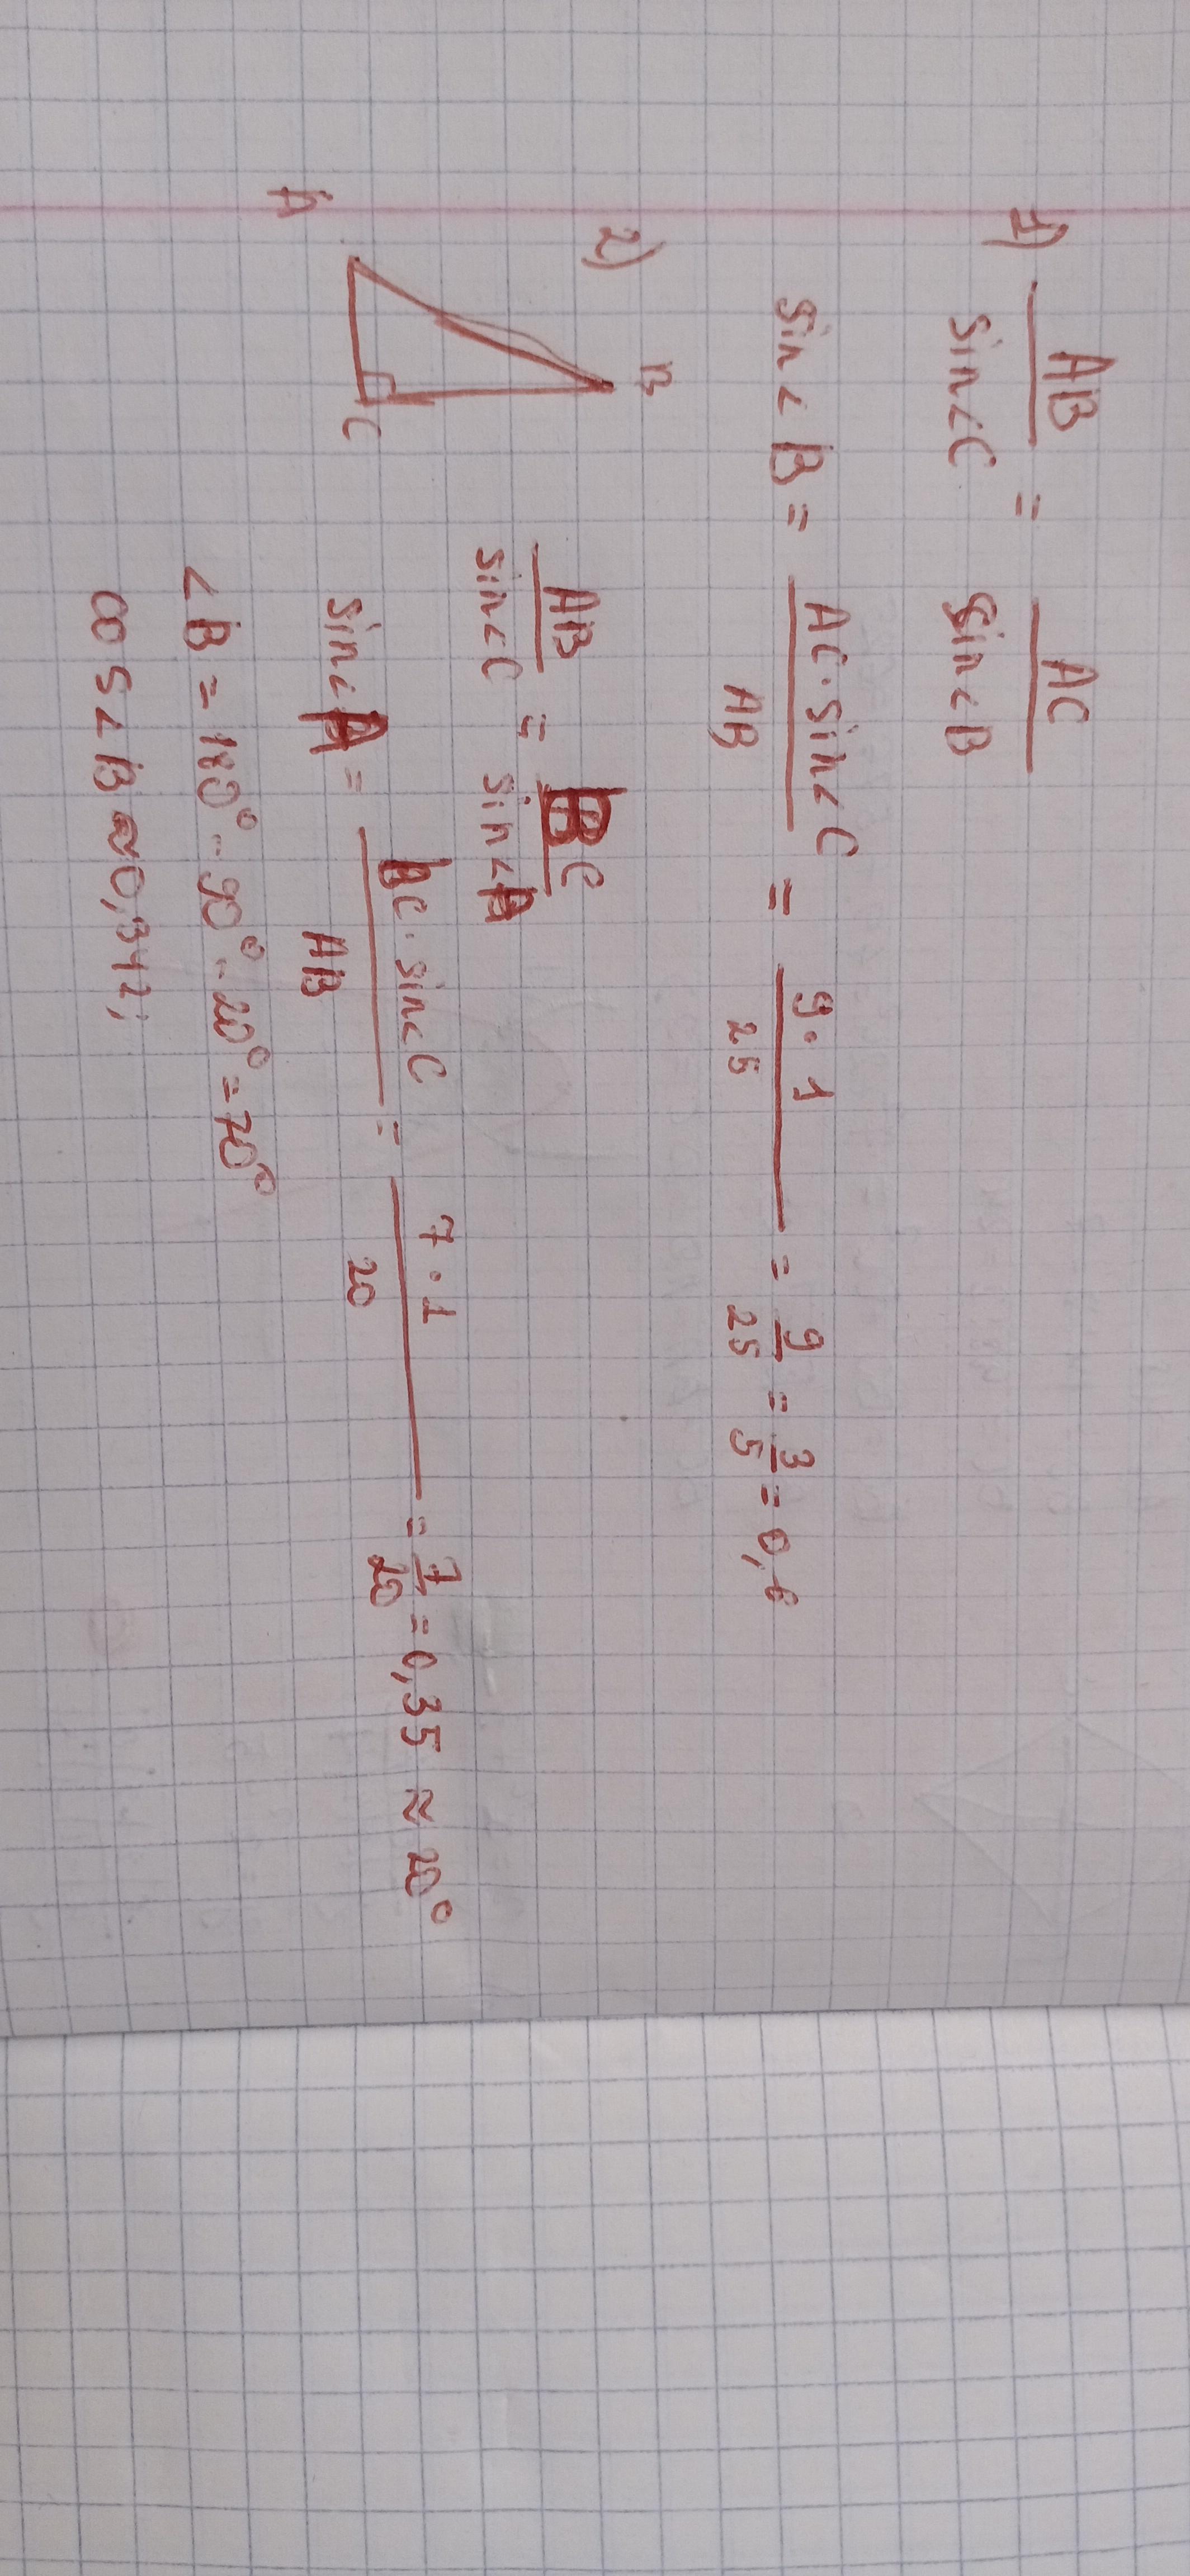 1) AB/sin∠C = AC/sin∠B
sin∠B = AC·sin∠C/AB = 9·1/25 = 9/25 = 3/5 = 0,6
2) AB/sin∠C = BC/sin∠A
B
A
C
sin∠A = BC·sin∠C/AB = 7·1/20 = 7/20 = 0,35 ≈ 20°
∠B = 180° - 90° - 20° = 70°
cos∠B ≈ 0,342;